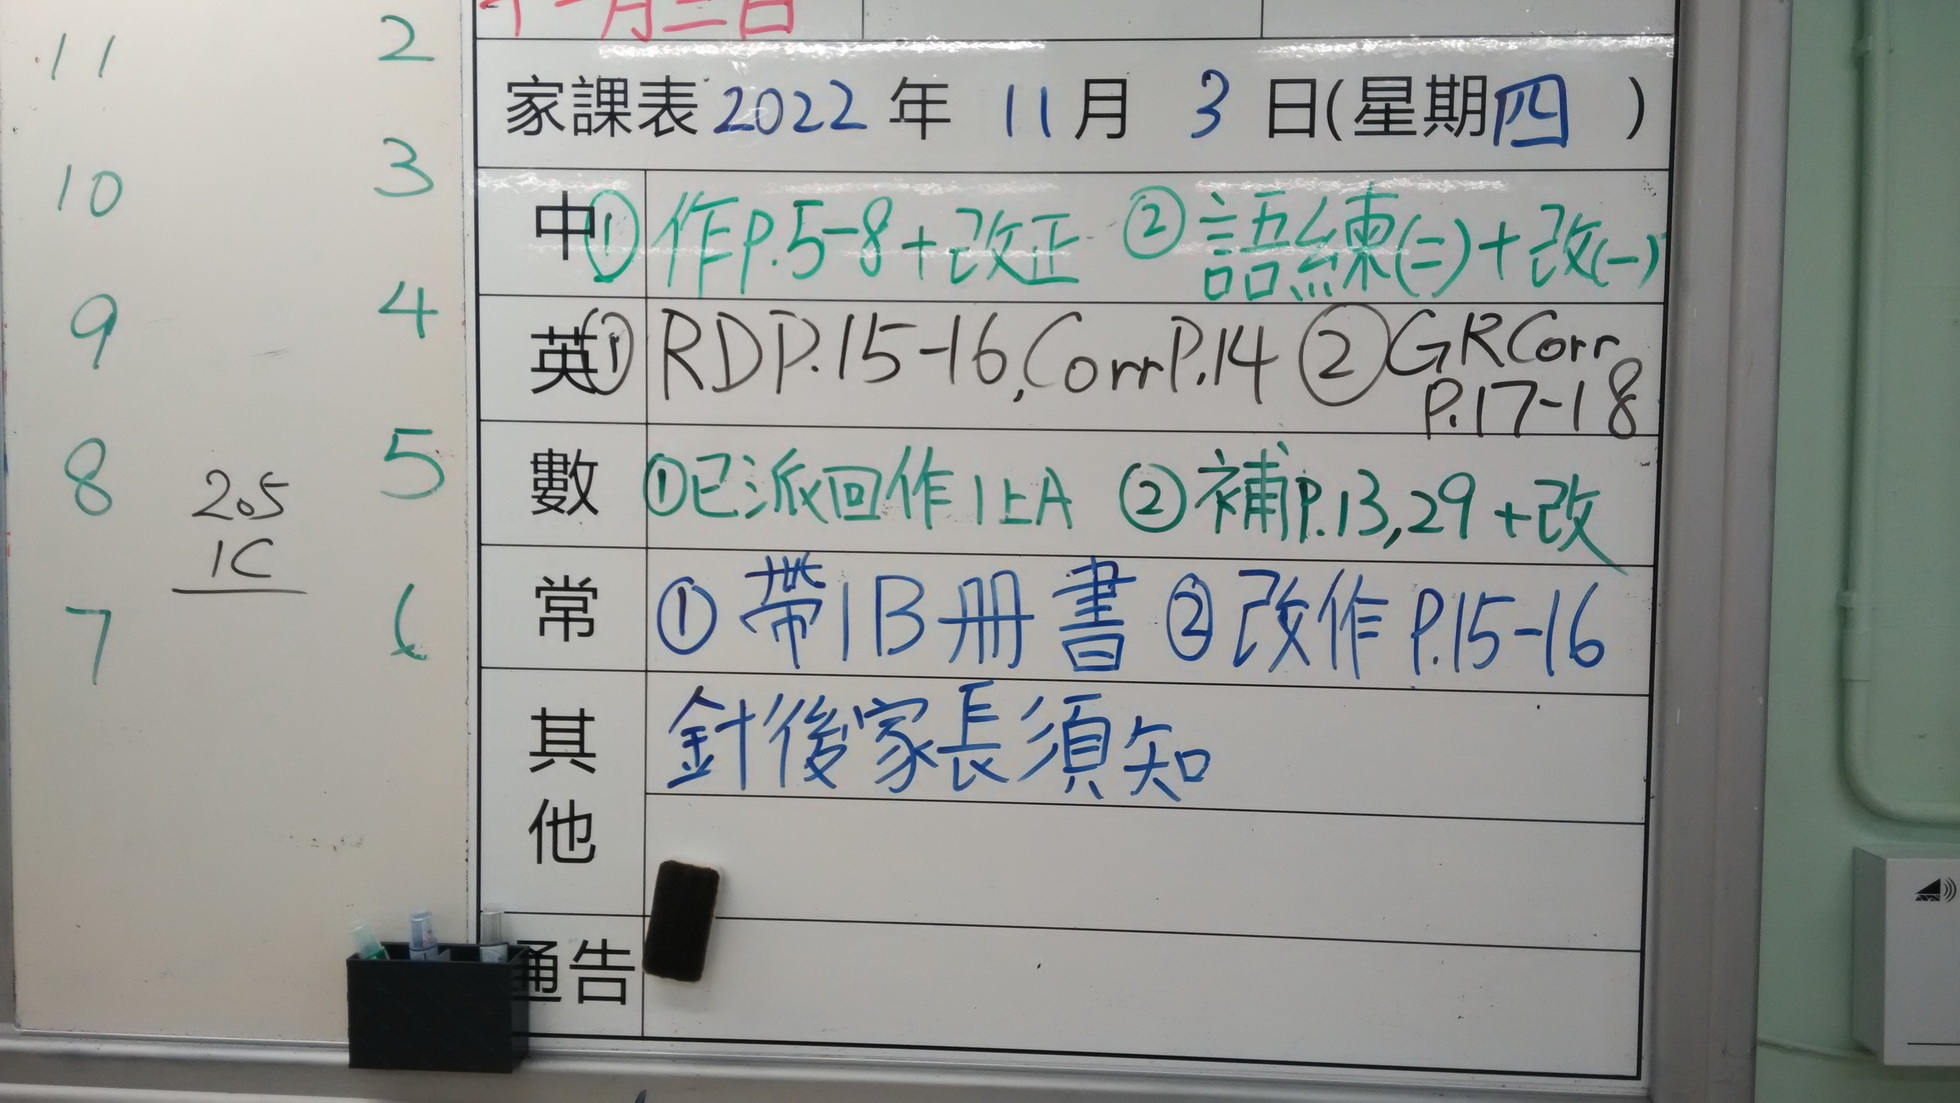 十一月三日
家課表 2022 年 11 月 3 日(星期四 )
中 ① 作P.5-8+改正 ② 語練(二)+改(一)
英 ① RD P.15-16, Corr P.14 ② GR Corr
P.17-18
數 ① 已派回作1上A ② 補P.13,29+改
常 ① 帶1B冊書 ② 改作 P.15-16
其他 針後家長須知
通告
11 2
10 3
9 4
8 5
205
1C
7 6